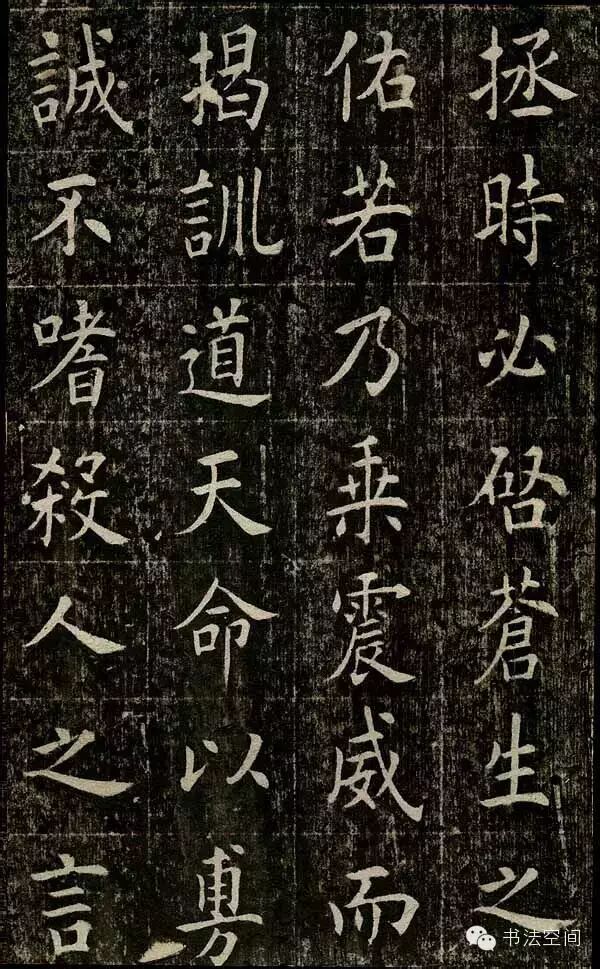 拯時必啓蒼生之
佑若乃乘震威而
揭訓道天命以勇
誠不嗜殺人之言
书法空间